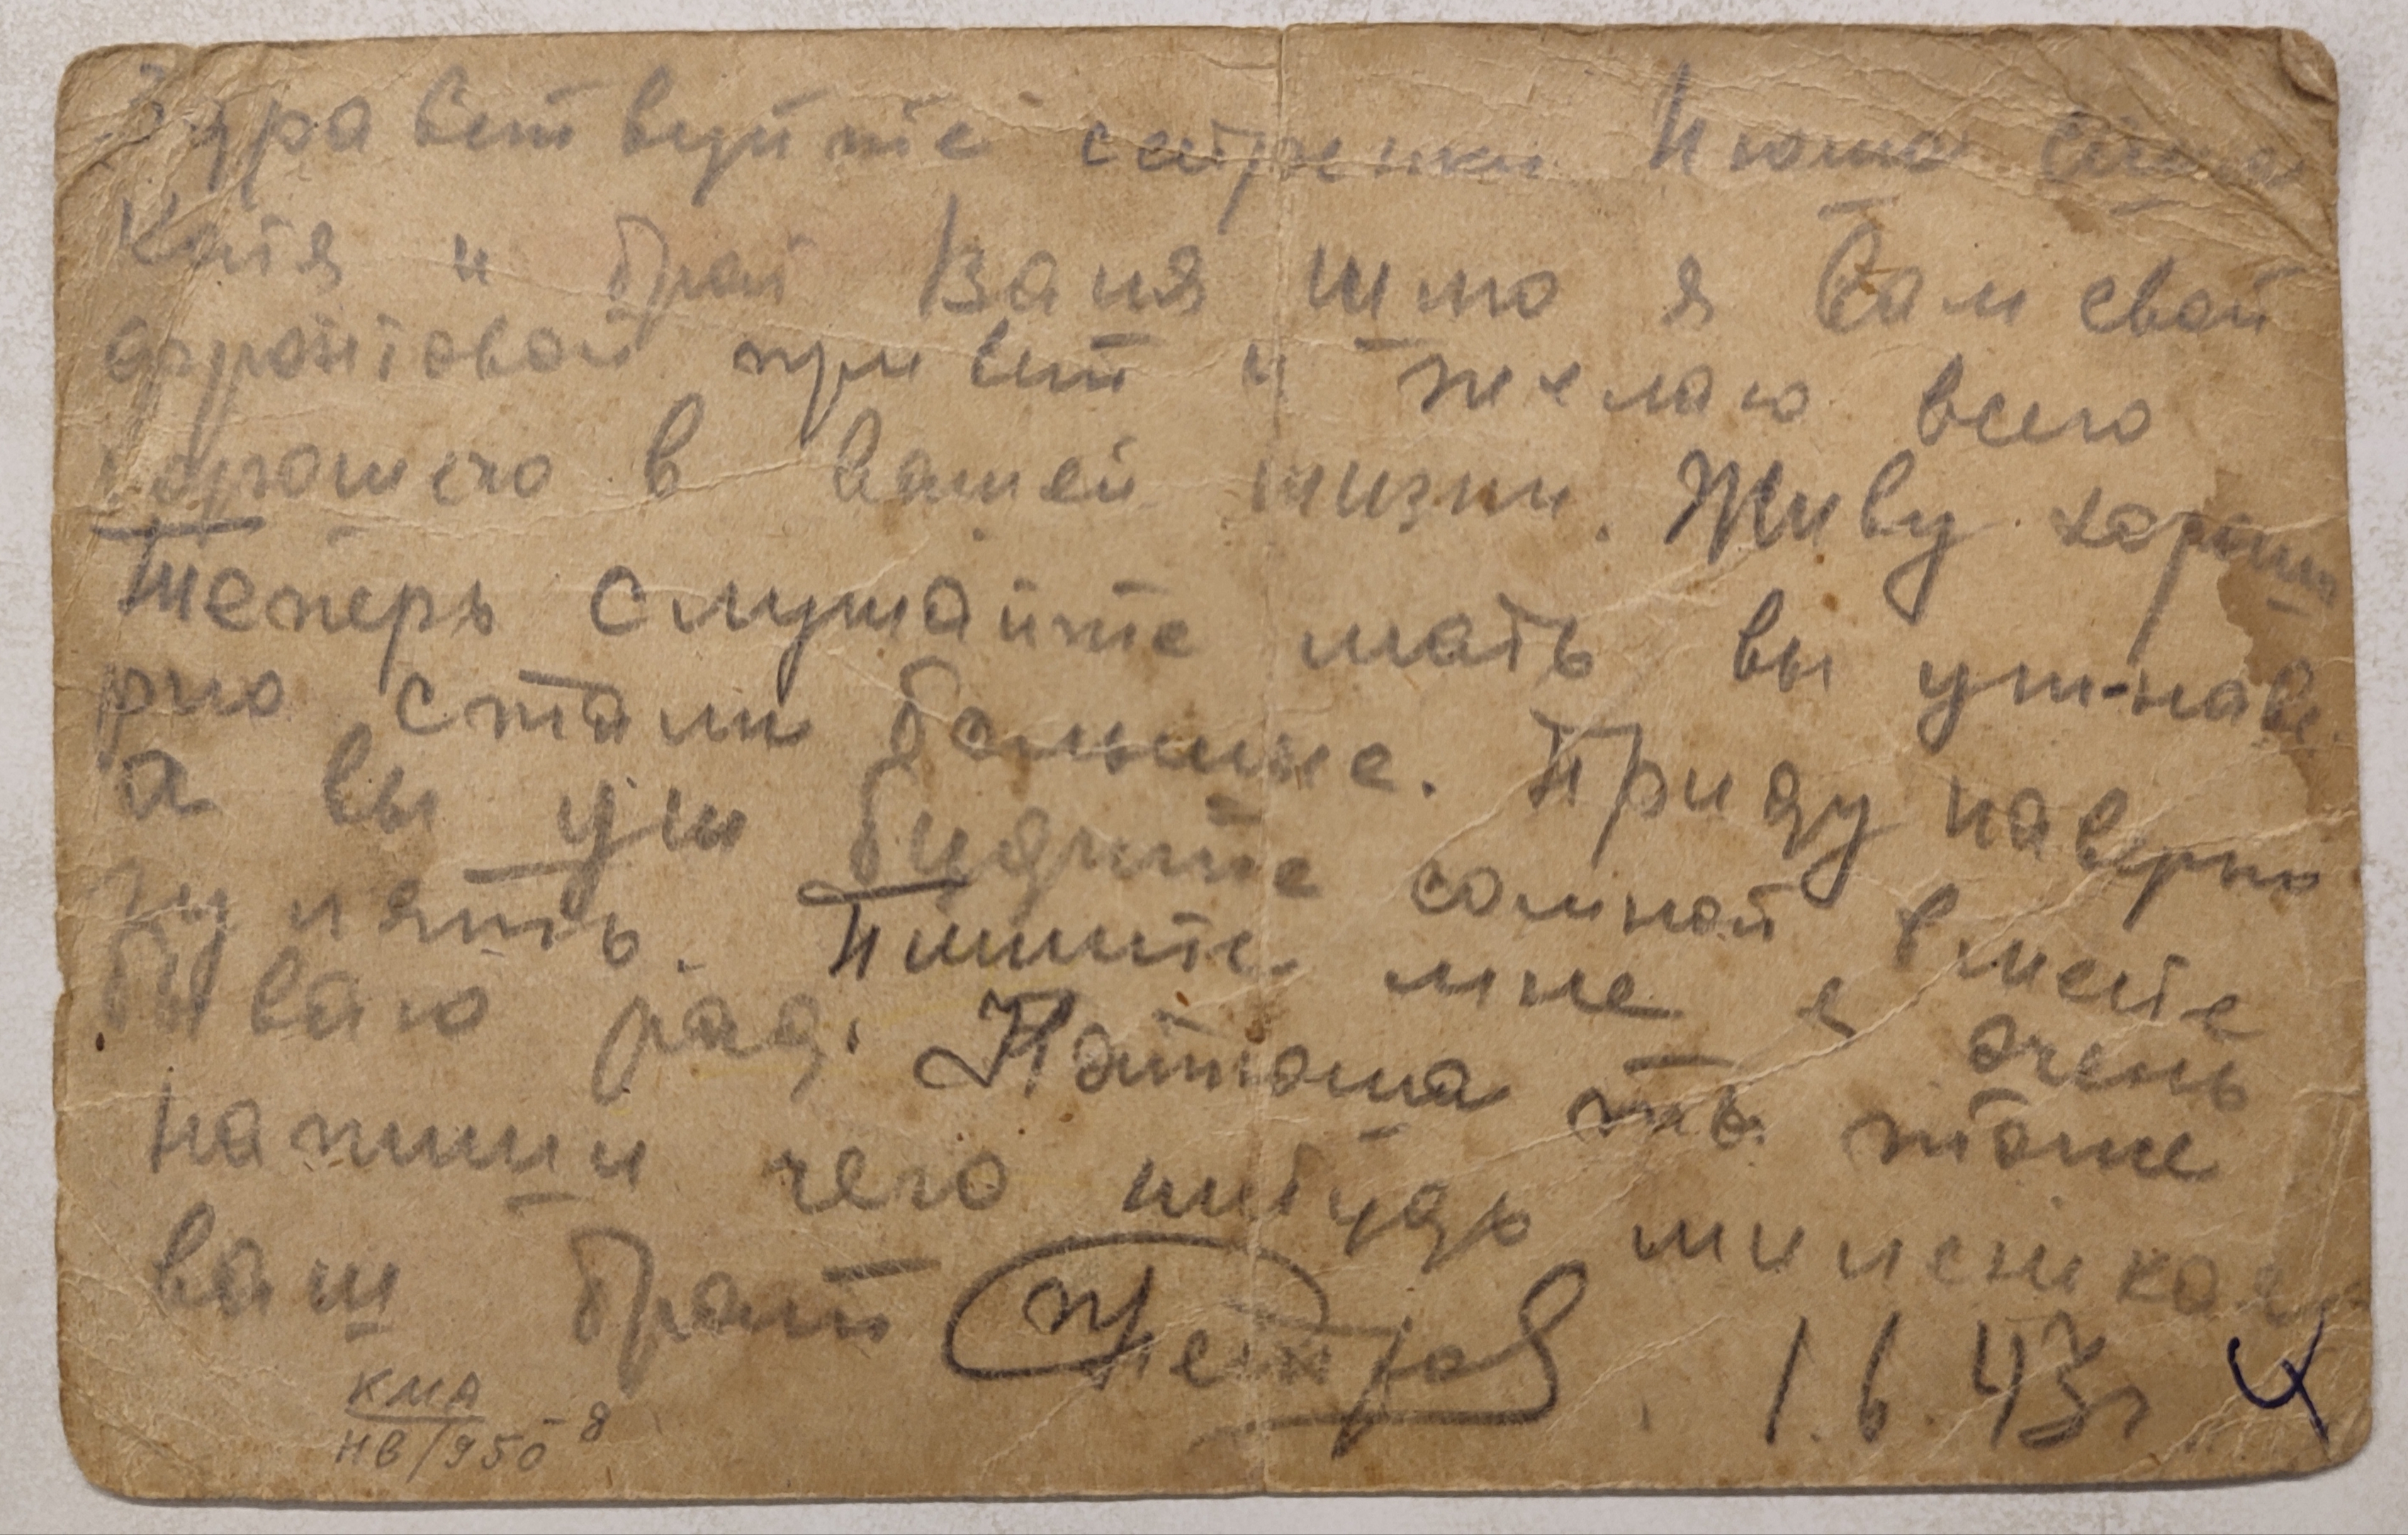 Здравствуйте сестренки Нюта
Катя и брат Ваня шлю я Вам свой
фронтовой привет и желаю всего
хорошего в вашей жизни. Живу хорошо
Теперь слушайте мать вы уш наве
рно стали больше. Приду наверно
а вы уш бидите сомной вместе
гулять. Пишите мне я очень
бываю рад. Натоша ты тоже
напиши чего нибудь
ваш брат Петров. 1.6.43г
КМА
НВ/950-8